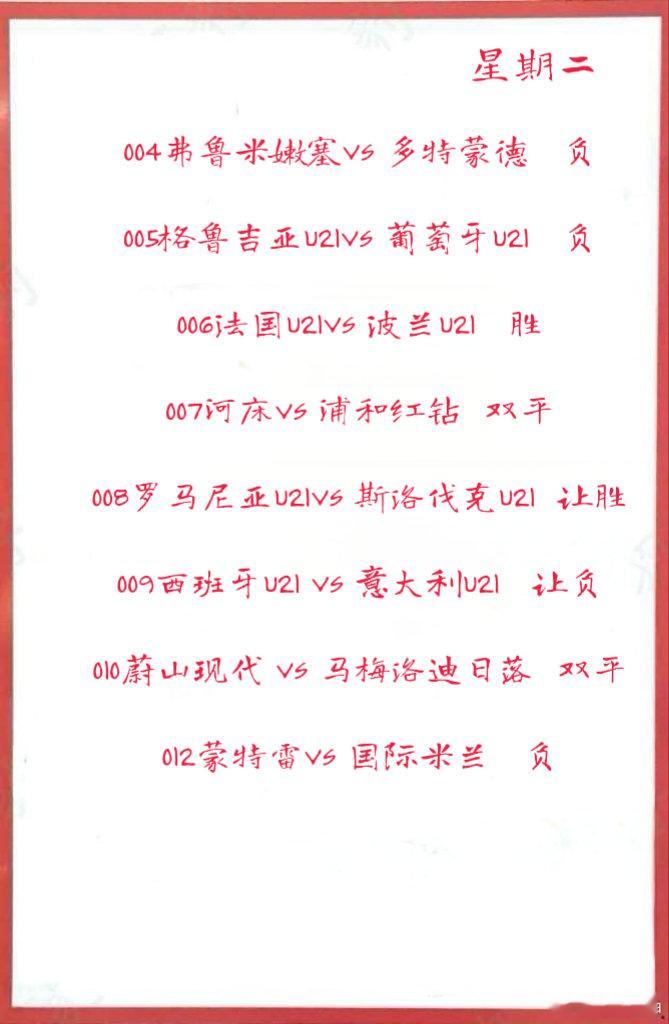 星期二
004弗鲁米嫩塞VS 多特蒙德 负
005格鲁吉亚U21VS 葡萄牙U21 负
006法国U21VS 波兰U21 胜
007河床VS 浦和红钻 双平
008罗马尼亚U21VS 斯洛伐克U21 让胜
009西班牙U21 VS 意大利U21 让负
010蔚山现代 VS 马梅洛迪日落 双平
012蒙特雷VS 国际米兰 负